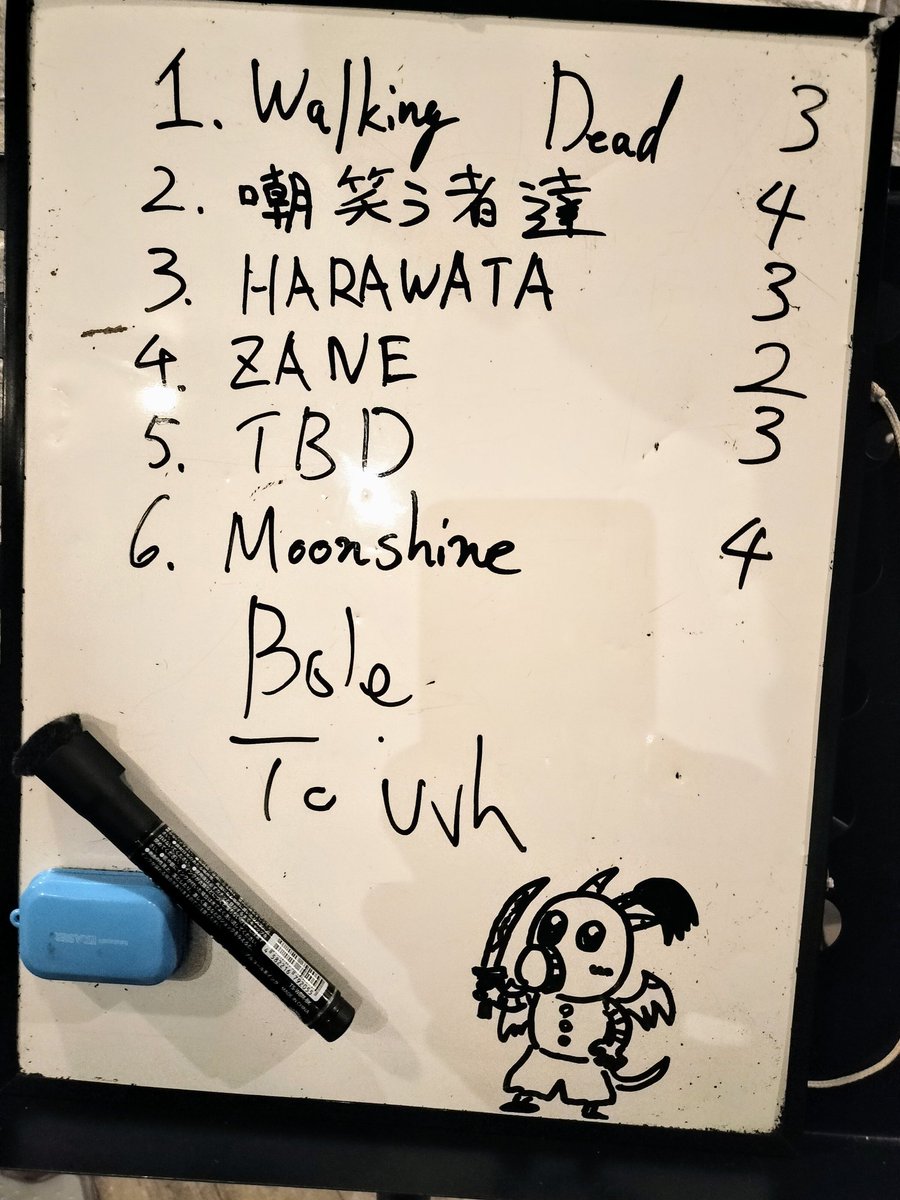 1. Walking Dead 3
2. 嘲笑う者達 4
3. HARAWATA 3
4. ZANE 2
5. TBD 3
6. Moonshine 4
Bole